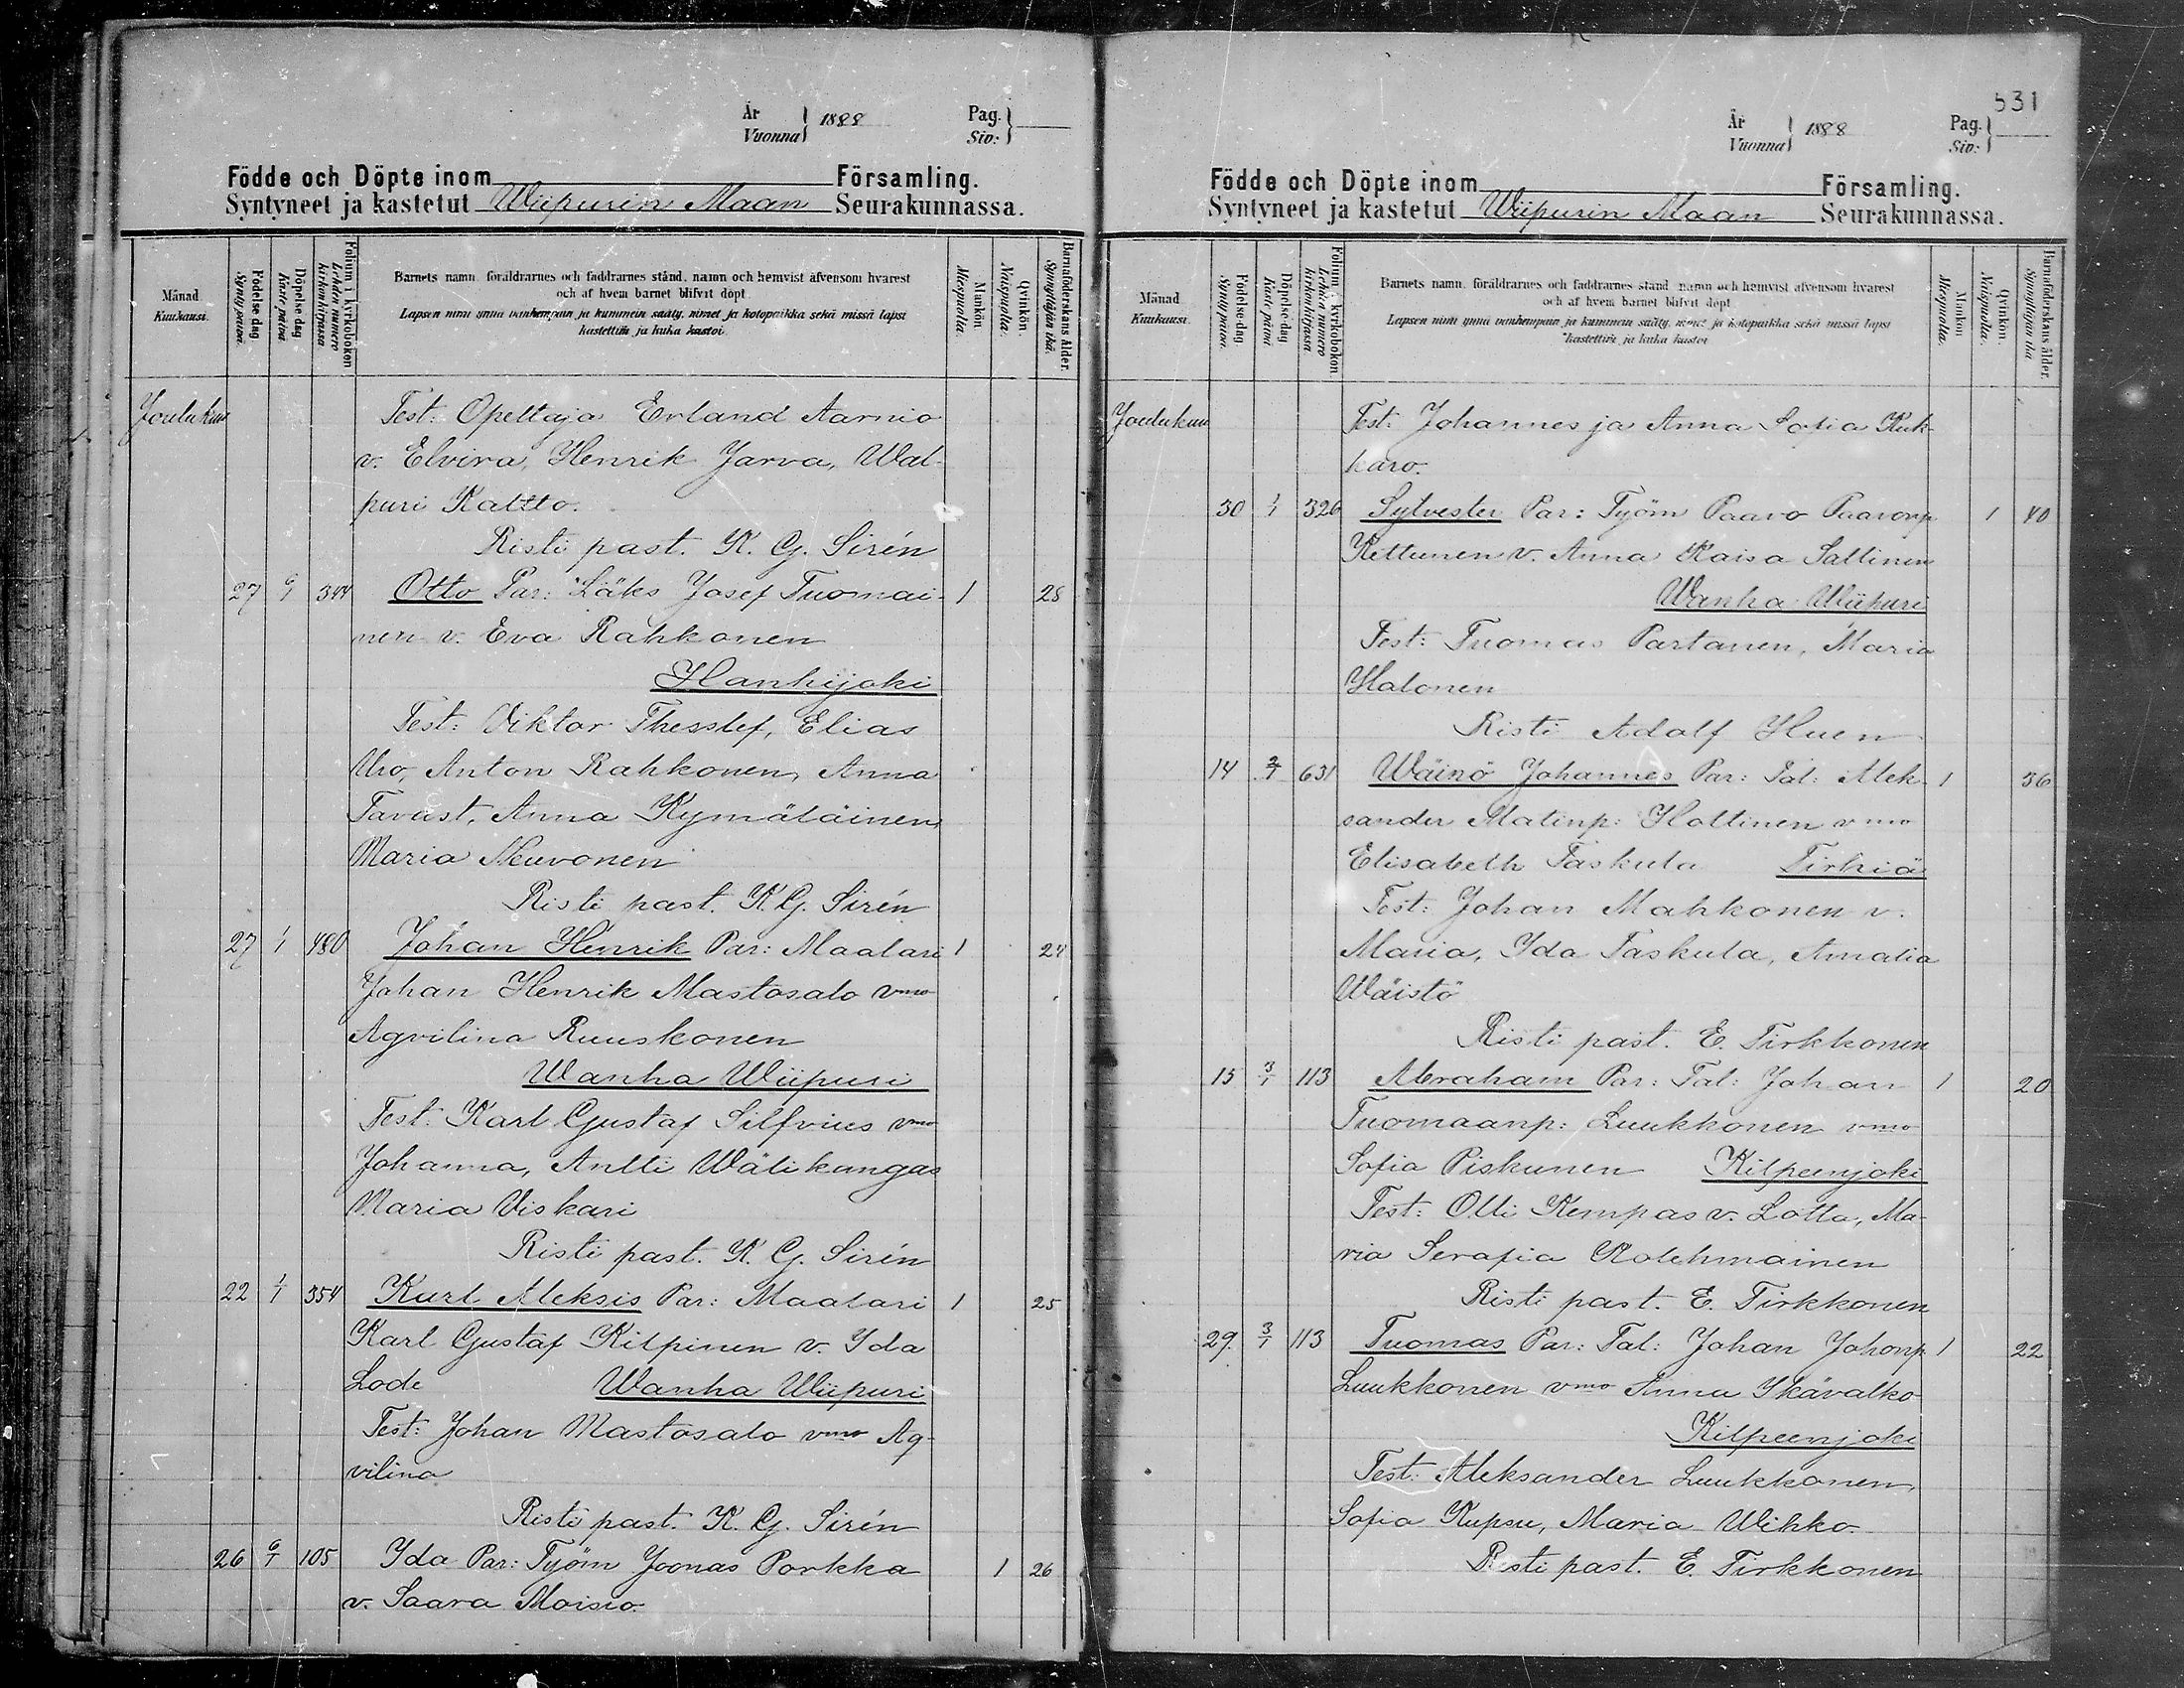 År
Vuonna } 1888
Pag.
Siv:
Födde och Döpte inom Församling.
Syntyneet ja kastetut Wiipurin Maan Seurakunnassa.
Månad
Kuukausi.
Födelse dag
Synty päivä.
Döpelse dag
Kaste päivä
Folium i kyrkoboken
Lehden numero kirkonkirjassa
Barnets namn, föräldrarnes och faddrarnes stånd, namn och hemvist äfvensom hvarest
och af hvem barnet blifvit döpt
Lapsen nimi ynnä vanhempain ja kummein sääty, nimet ja kotopaikka sekä missä lapsi
kastettiin ja kuka kastoi
Mankön
Miespuolia.
Qvinkön.
Naispuolia.
Barnaföderskans ålder.
Synnyttäjän ikä.
Joulukuu
Test: Opettaja Erland Aarnio
v. Elvira, Henrik Jarva, Wal-
puri Kaltto.
Risti past. K. G. Sirén
27 6/1 344 Otto Par: Läks Josef Tuomai- 1 28
nen v. Eva Rahkonen
Hanhijoki
Test: Viktor Thesslef, Elias
Uro, Anton Rahkonen, Anna
Tavast, Anna Kymäläinen
Maria Neuvonen
Risti past. K. G. Sirén
27 1/1 480 Johan Henrik Par: Maalari 1 24
Johan Henrik Mastosalo vmo
Agvilina Ruuskonen
Wanha Wiipuri
Test: Karl Gustaf Silfvius vmo
Johanna, Antti Wälikangas
Maria Viskari
Risti past. K. G. Sirén
22 1/1 354 Kurt Aleksis Par: Maalari 1 25
Karl Gustaf Kilpinen v. Ida
Lode Wanha Wiipuri
Test: Johan Mastosalo vmo Ag-
vilina
Risti past. K. G. Sirén
26 6/1 105 Ida Par: Työm Joonas Porkka 1 26
v. Saara Moisio.
531
År
Vuonna } 1888
Pag.
Siv:
Födde och Döpte inom Församling.
Syntyneet ja kastetut Wiipurin Maan Seurakunnassa.
Månad
Kuukausi
Födelse dag
Synty päivä.
Döpelse dag
Kaste päivä
Folium i kyrkoboken
Lehden numero kirkonkirjassa
Barnets namn, föräldrarnes och faddrarnes stånd, namn och hemvist äfvensom hvarest
och af hvem barnet blifvit döpt
Lapsen nimi ynnä vanhempain ja kummein sääty, nimet ja kotopaikka sekä missä lapsi
kastettiin ja kuka kastoi
Mankön
Miespuolia.
Qvinkön.
Naispuolia.
Barnaföderskans ålder.
Synnyttäjän ikä
Joulukuu
Test: Johannes ja Anna Sofia Kuk-
karo.
30 1/1 326 Sylvester Par: Työm Paavo Paavonp 1 40
Kettunen v. Anna Kaisa Sallinen
Wanha Wiipuri
Test: Tuomas Partanen, Maria
Halonen
Risti Adolf Huen
14 2/1 631 Wäinö Johannes Par: Tal: Alek- 1 36
sander Matinp: Hottinen vmo
Elisabeth Taskula Tirhiä
Test: Johan Mahkonen v.
Maria, Ida Taskula, Amalia
Wäistö
Risti past. E. Tirkkonen
15 3/1 113 Abraham Par: Tal: Johan 1 20
Tuomaanp: Luukkonen vmo
Sofia Piskunen Kilpeenjoki
Test: Olli Kempas v. Lotta, Ma-
ria Serafia Kolehmainen
Risti past. E. Tirkkonen
29. 3/1 113 Tuomas Par: Tal: Johan Johonp. 1 22
Luukkonen vmo Anna Ikävalko
Kilpeenjoki
Test: Aleksander Luukkonen,
Sofia Kupsu, Maria Wihko.
Risti past. E. Tirkkonen